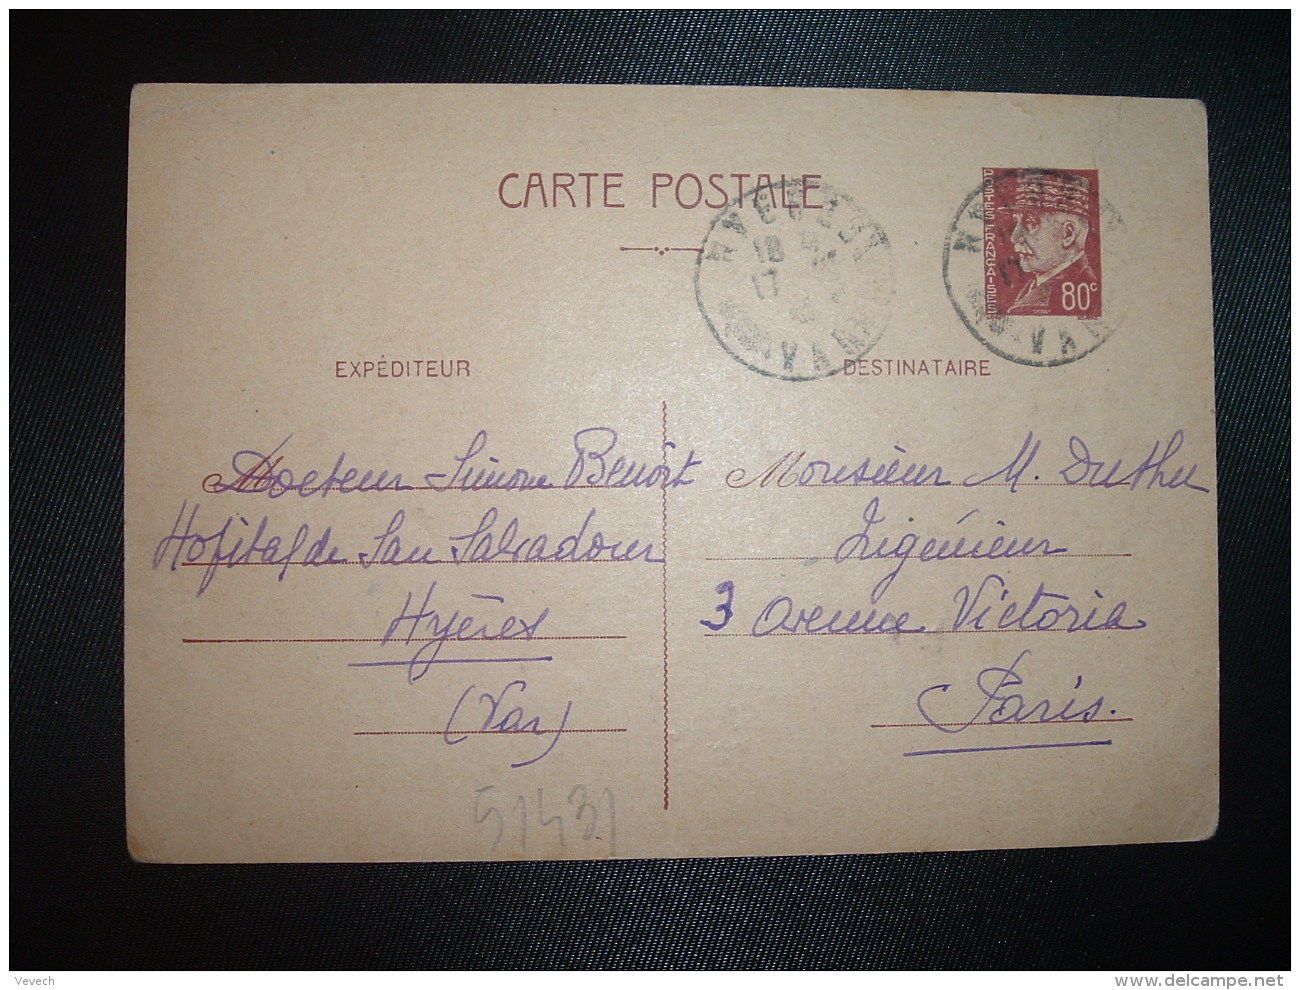 CARTE POSTALE
POSTES FRANÇAISES
80c
HYERES
18
17
VAR
VAR
EXPÉDITEUR
DESTINATAIRE
Docteur Simone Benoît
Hôpital de San Salvadour
Hyères
(Var)
Monsieur M. Duthu
Ingénieur
3 Avenue Victoria
Paris.
51431
Vevech
www.delcampe.net